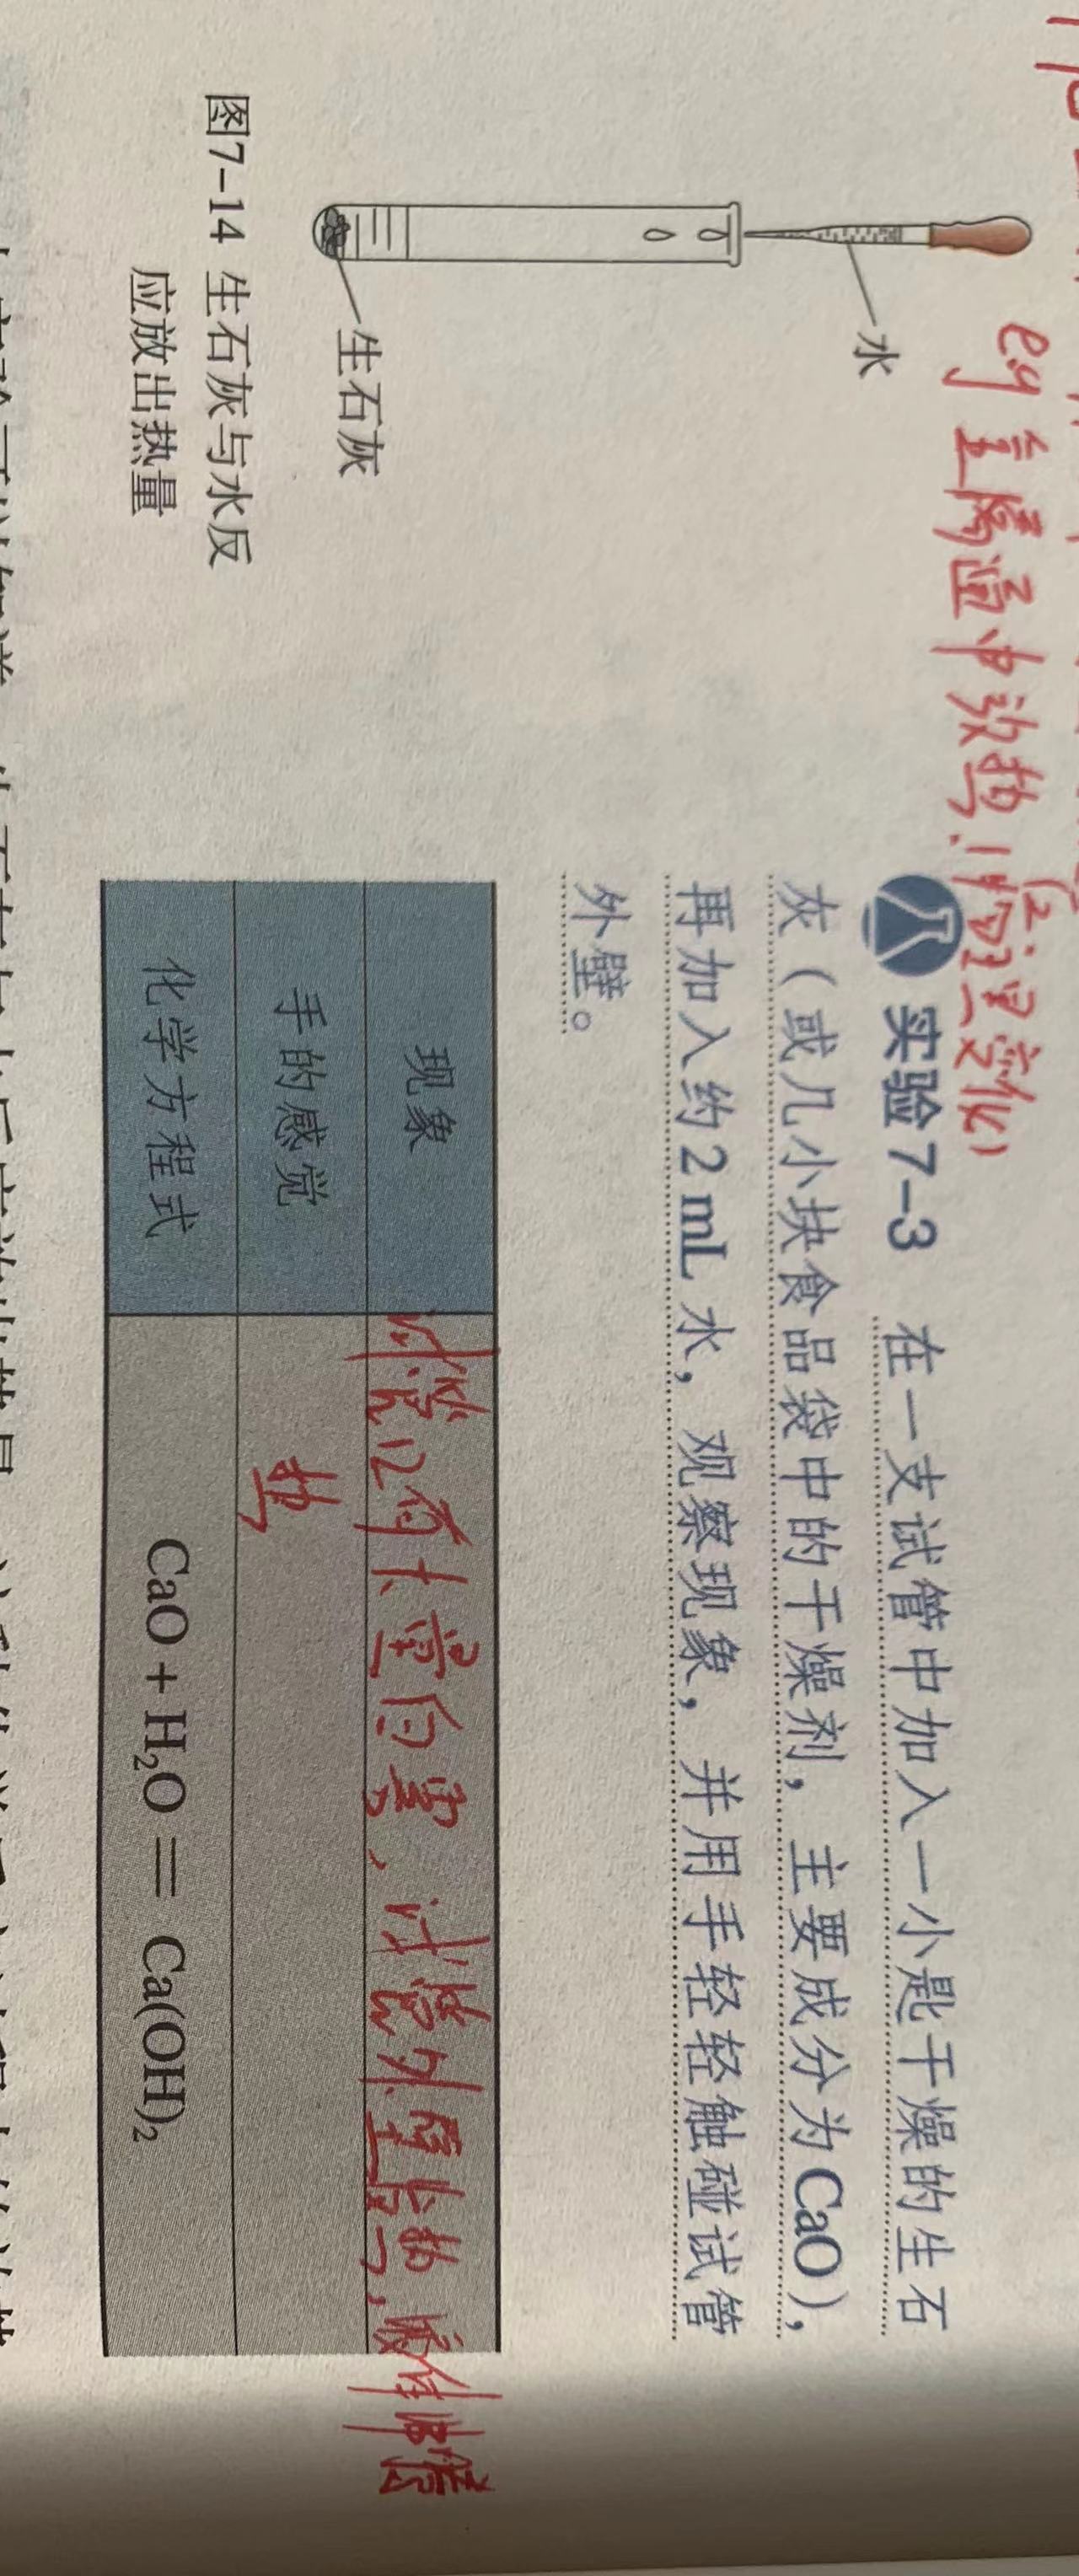 e.g 自嗨 金属
实验7-3 在一支试管中加入一小匙干燥的生石
灰（或几小块食品袋中的干燥剂，主要成分为CaO），
再加入约2 mL水，观察现象，并用手轻轻触碰试管
外壁。
水
生石灰
图7-14 生石灰与水反
应放出热量
现象
试管口有大量白雾，试管外壁发热，液体浑浊
手的感觉
热
化学方程式
CaO + H₂O ═ Ca(OH)₂